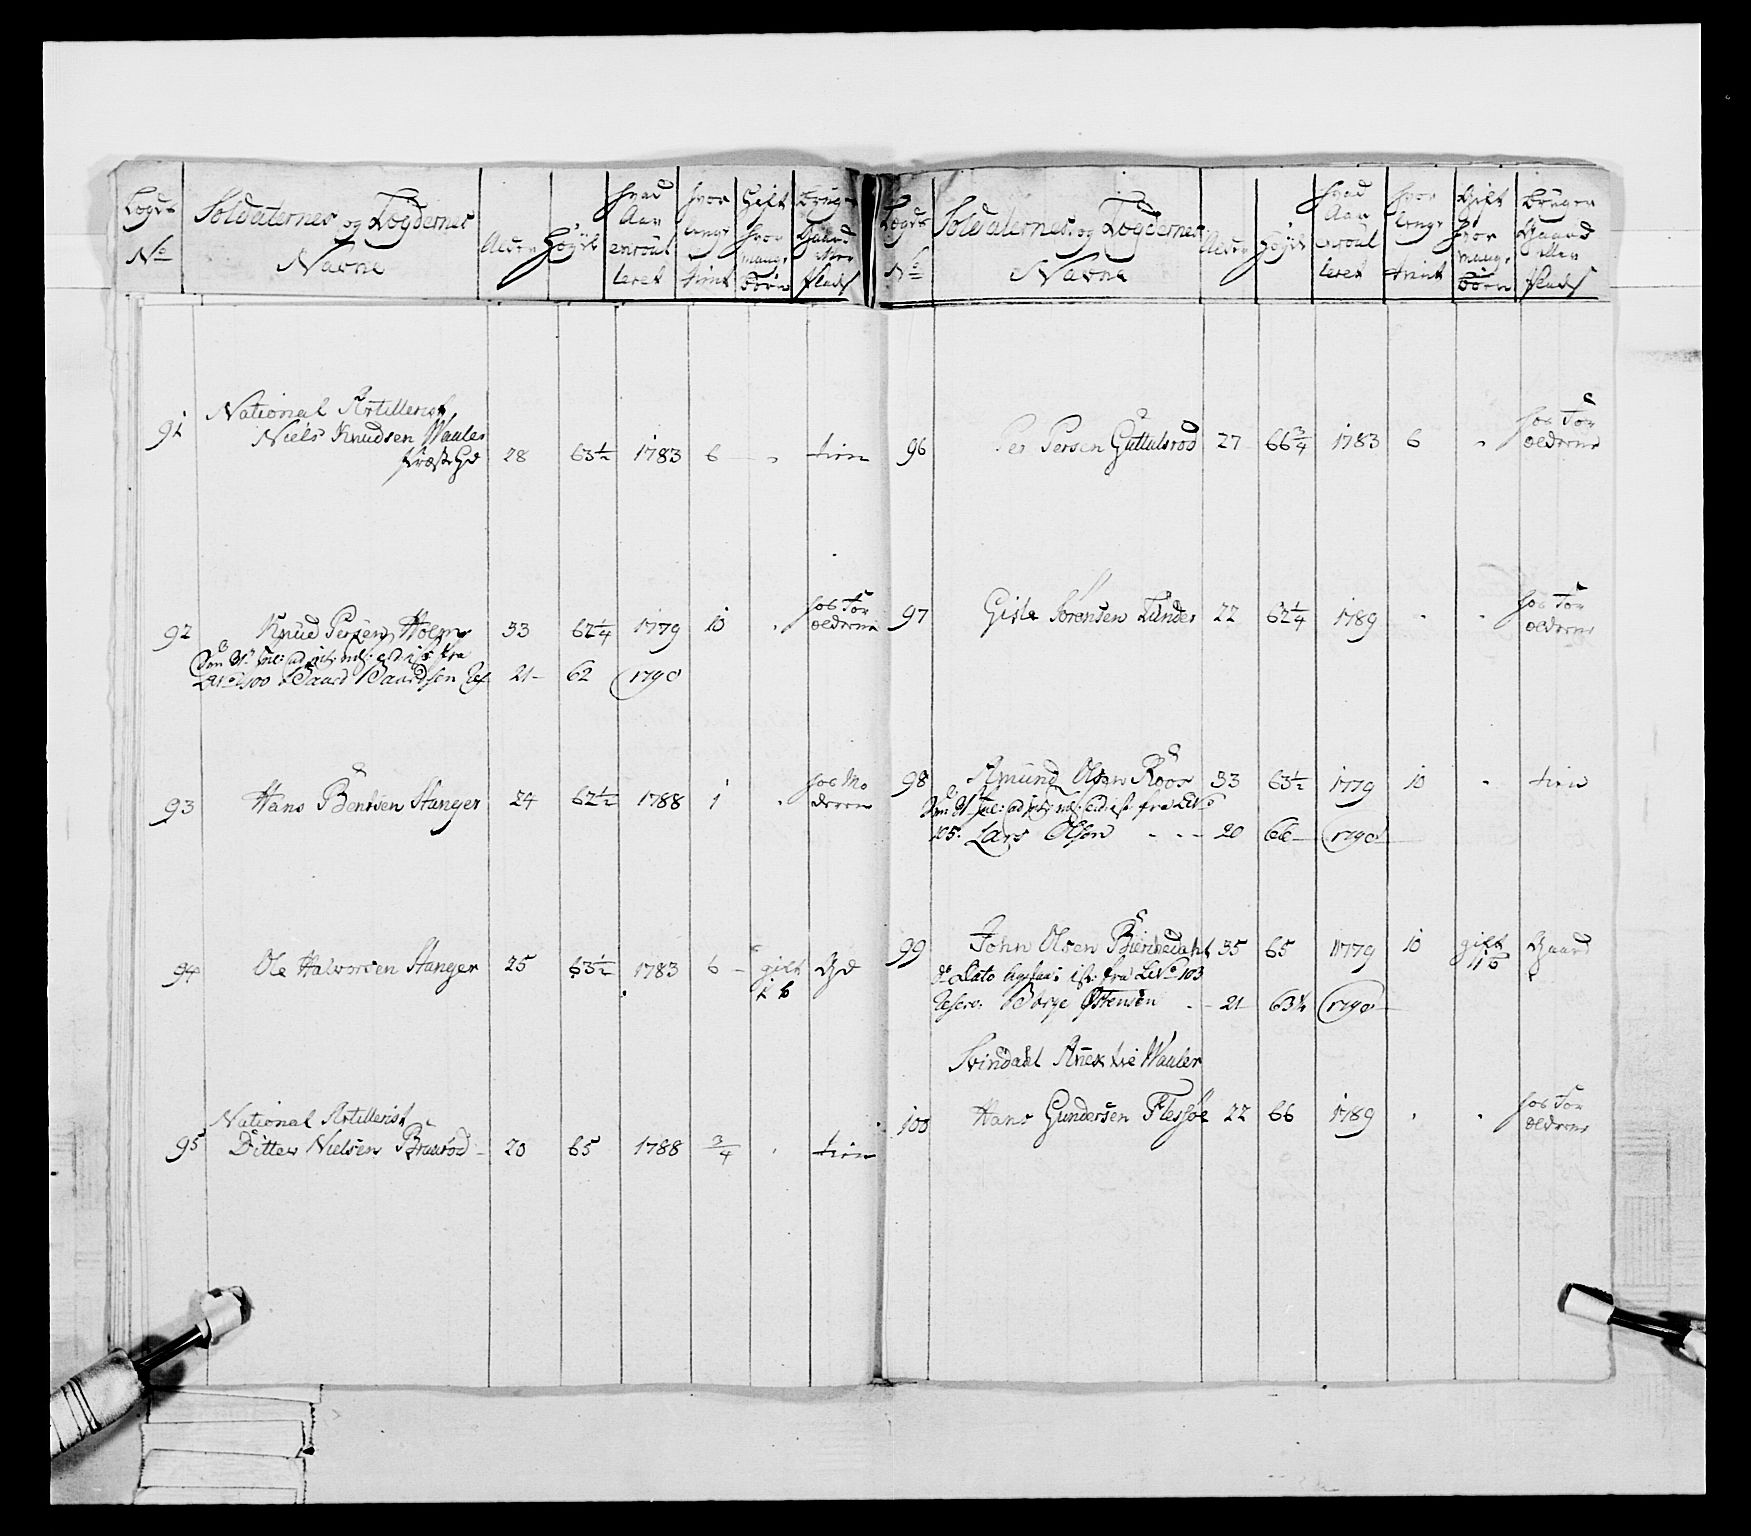 Lægds No
Soldaternes og Lægdernes Navne
Alder
Høyde
hvad Aar enroulleret
hvor lenge tient
Gift hvor mange Børn
Bruger Gaard eller Plads
91 National Artillerist
Niels Knudsen Waaler
Præste Gd 28 63 1/2 1783 6 " tien
92 Knud Persen Holm 33 62 1/4 1779 10 " hos For
ældrene
Baard Baardsen 21 62 1790
93 Hans Bentsen Stanger 24 62 1/2 1788 1 " hos Mo
deren
94 Ole Halvorsen Stanger 25 63 1/2 1783 6 gift Gd
National Artillerist
95 Ditlev Nielsen 20 65 1788 3/4 " tien
Lægds No
Soldaternes og Lægdernes Navne
Alder
Høyde
hvad Aar enroulleret
hvor lenge tient
Gift hvor mange Børn
Bruger Gaard eller Plads
96 Per Persen Guttulsrød 27 66 3/4 1783 6 " hos For
ældrene
97 Gisle Sørensen Tunder 22 62 1/4 1789 " " hos For
ældrene
98 Amund Olsen Roos 33 63 1/2 1779 10 " tien
fra L: No
105. Lars Olsen 20 66 1790
99 John Olsen Bierkedahl 35 65 1779 10 gift Gaard
fra L: No 103
Børge Østensen 21 63 1/4 1790
Svindahl Anex til Waaler
100 Hans Gundersen Flessøe 22 66 1789 " " hos For
ældrene